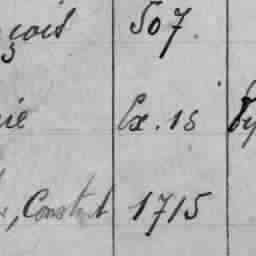 çois 507.
rie Ex. 15
, Constant 1715